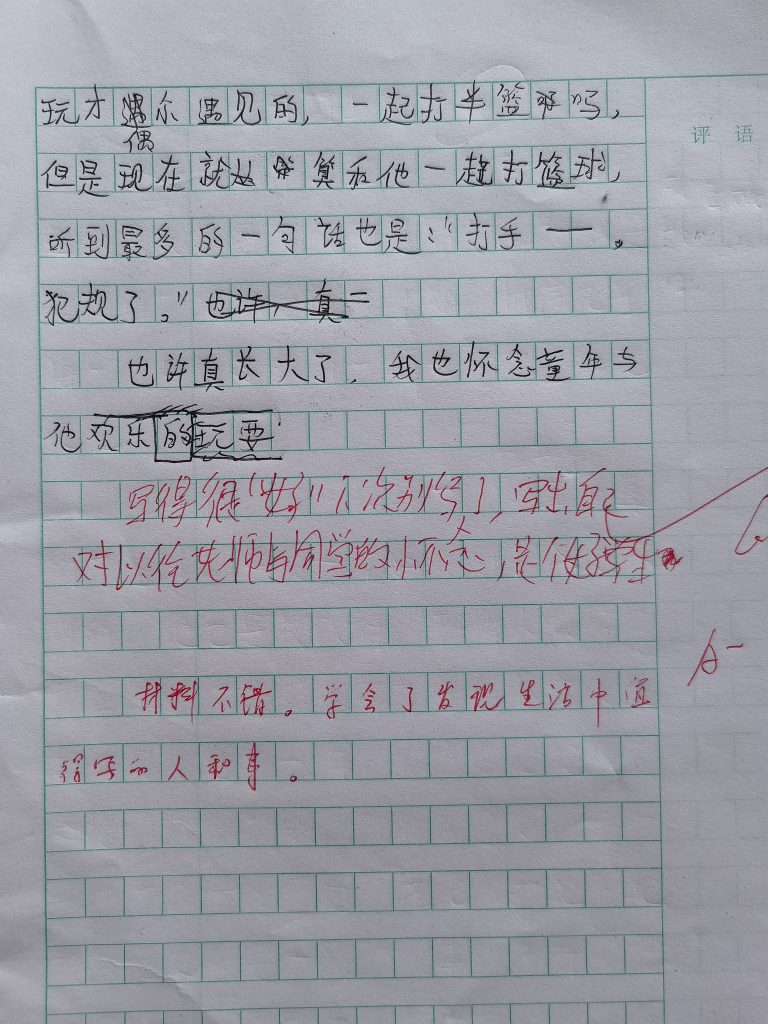 玩才遇尔遇见的，一起打半篮球吗，
偶
但是现在就算和他一起打篮球，
听到最多的一句话也是：“打手——。
犯规了。”也许，真
也许真长大了，我也怀念童年与
他欢乐的玩要
写得很“好”下次别写了，写出自己
对以往老师与同学的怀念，是个好学生
材料不错。学会了发现生活中值
得写的人和事。
评语
A-